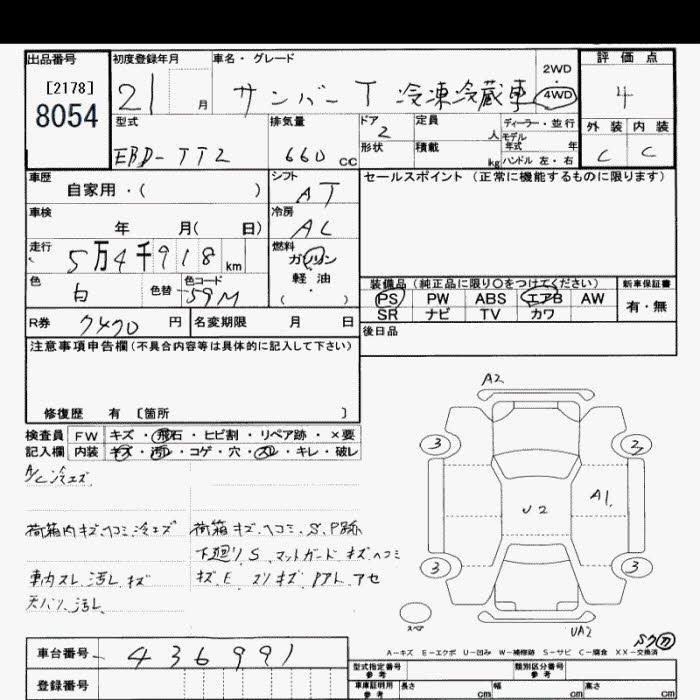 出品番号 初度登録年月 車名・グレード 評価点
[2178]
8054
21 月 サンバー T 冷凍冷蔵車 2WD・4WD 4
型式 排気量 ドア 定員 ディーラー・並行 外装 内装
EBD-TT2 660 CC 2 人 モデル年式 年 C C
形状 積載 kg ハンドル 左・右
車歴 シフト セールスポイント (正常に機能するものに限ります)
自家用・( ) AT
車検 冷房
年 月( 日) AC
走行 燃料
5万4千918 km ガソリン
軽油
( ・ )
色 色替 色コード
白 59M
装備品 (純正品に限り〇をつけてください) 新車保証書
PS PW ABS エアB AW 有・無
SR ナビ TV カワ
R券 7470 円 名変期限 月 日
後日品
注意事項申告欄(不具合内容等は具体的に記入して下さい)
修復歴 有 [箇所 ]
検査員 FW キズ・飛石・ヒビ割・リペア跡・×要
記入欄 内装 キズ・汚れ・コゲ・穴・スレ・キレ・破レ
A/C 冷エズ
荷箱内キズ、ヘコミ、冷エズ 荷箱キズ、ヘコミ、S、P跡
下廻り、S マットガードキズヘコミ
車内スレ、汚レ、キズ キズ、E スリキズ Pアト、アセ
天バリ、汚レ
A2
3 2
U2 A1
3 3
スペア
UA2
Sク
A-キズ E-エクボ U-凹み W-補修跡 S-サビ C-腐食 XX-交換済
車台番号 - 436991
登録番号
型式指定番号 参考 類別区分番号 参考
車庫証明用 参考 長さ cm 幅 cm 高さ cm